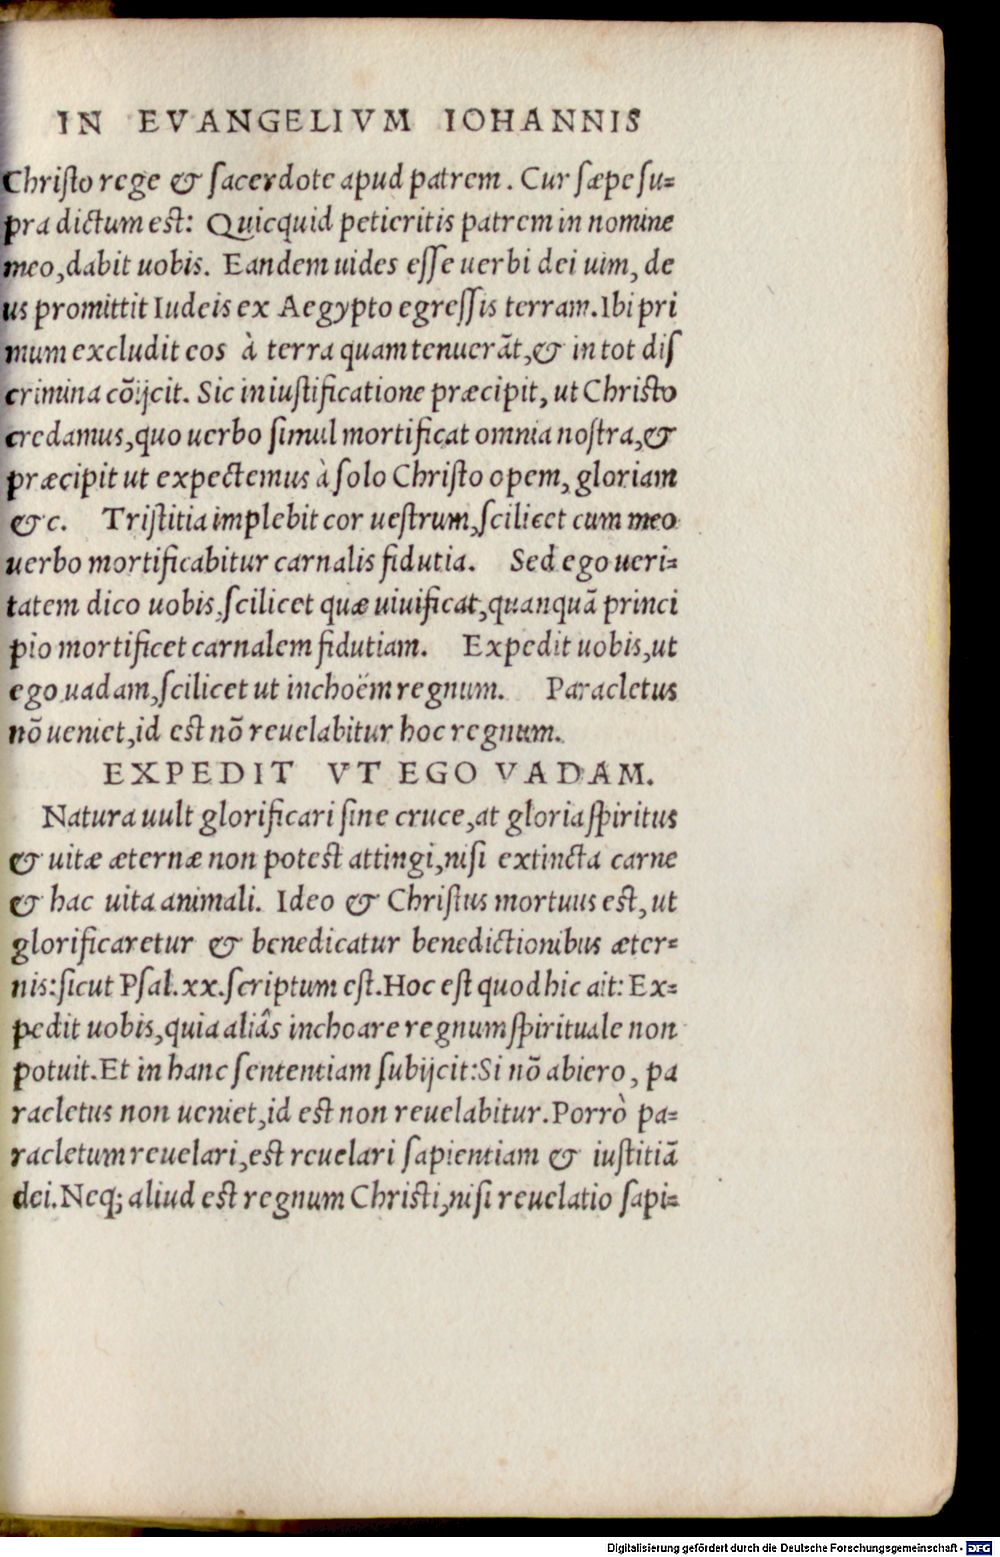 IN EVANGELIVM IOHANNIS
Christo rege & sacerdote apud patrem. Cur sæpe su=
pra dictum est: Quicquid petieritis patrem in nomine
meo, dabit uobis. Eandem uides esse uerbi dei uim, de
us promittit Iudeis ex Aegypto egressis terram. Ibi pri
mum excludit eos à terra quam tenuerãt, & in tot dis
crimina cõijcit. Sic in iustificatione præcipit, ut Christo
credamus, quo uerbo simul mortificat omnia nostra, &
præcipit ut expectemus à solo Christo opem, gloriam
&c. Tristitia implebit cor uestrum, scilicet cum meo
uerbo mortificabitur carnalis fidutia. Sed ego ueri=
tatem dico uobis, scilicet quæ uiuificat, quanquã princi
pio mortificet carnalem fidutiam. Expedit uobis, ut
ego uadam, scilicet ut inchoëm regnum. Paracletus
nõ ueniet, id est nõ reuelabitur hoc regnum.
EXPEDIT VT EGO VADAM.
Natura uult glorificari sine cruce, at gloria spiritus
& uitæ æternæ non potest attingi, nisi extincta carne
& hac uita animali. Ideo & Christus mortuus est, ut
glorificaretur & benedicatur benedictionibus æter=
nis: sicut Psal. xx. scriptum est. Hoc est quod hic ait: Ex=
pedit uobis, quia aliâs inchoare regnum spirituale non
potuit. Et in hanc sententiam subijcit: Si nõ abiero, pa
racletus non ueniet, id est non reuelabitur. Porrò pa=
racletum reuelari, est reuelari sapientiam & iustitiã
dei. Neq; aliud est regnum Christi, nisi reuelatio sapi=
Digitalisierung gefördert durch die Deutsche Forschungsgemeinschaft - DFG